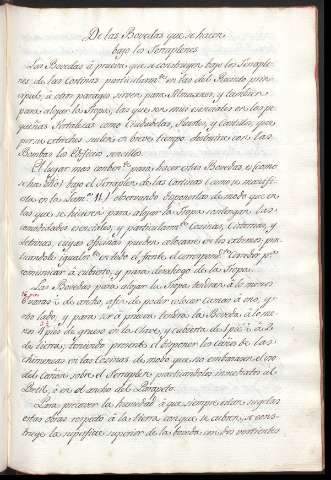 De las Bovedas que se hacen
bajo los Terraplenes
Las Bovedas á prueva que se construyen bajo los Terraple-
nes de las Cortinas particularm.te en las del Recinto prin-
cipal, á otros parages sirven para Almacenes, y tambien
para alojar la Tropa, las que son mui esenciales en las pe-
queñas Fortalezas como Ciudadelas, Fuertes, y Castillos, que
por su estrechez suelen en breve tiempo destruirse con las
Bombas los Edificios sencillos.
El lugar mas comben.te para hacer estas Bovedas es (como
se ha dho) bajo el Terraplen de las Cortinas (como se manifi-
esta en la Lam.a 11) observando disponerlas de modo que en
las que se hicieren para alojar la Tropa contengan las
comodidades esenciales, y particularm.te Cocinas, Cisternas, y
letrinas, cuyas oficinas pueden colocarse en los extremos, prac-
ticandole igualm.te en todo el frente el correspond.te Corredor p.a
comunicar á cubierto, y para desahogo de la Tropa.
Las Bovedas para alojar la Tropa tendran á lo menos
6 varas de ancho, afin de poder colocar Camas á uno, y
otro lado, y para ser á prueva tendra la Boveda á lo me-
nos 4 pies de grueso en la Clave, y cubierta de 1 pie á 2
de tierra; teniendo presente el disponer los Cañones de las
Chimeneas en las Cocinas de modo que no embarazen el uso
del Cañon sobre el Terraplen practicandolos inmediatos al
Petril, ó en el ancho del Parapeto.
Para precaver la humedad á que siempre estan sugetas
estas obras respecto á la tierra con que se cubren, se cons-
truye la superficie superior de la boveda en dos vertientes